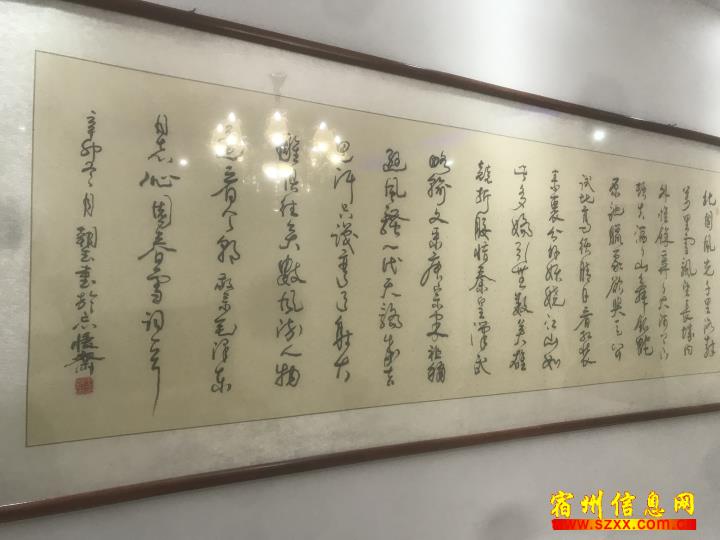 北国风光千里冰封
万里雪飘望长城内
外惟馀莽々大河上下
顿失滔々山舞银蛇
原驰腊象欲与天公
试比高须晴日看红装
素裹分外妖娆江山如
此多娇引无数英雄
竞折腰惜秦皇汉武
略输文采唐宗宋祖稍
逊风骚一代天骄成吉
思汗只识弯弓射大
雕俱往矣数风流人物
还看今朝 敬录毛泽东
同志沁园春雪词一首
辛卯冬月 书於 斋
宿州信息网
www.szxx.com.cn